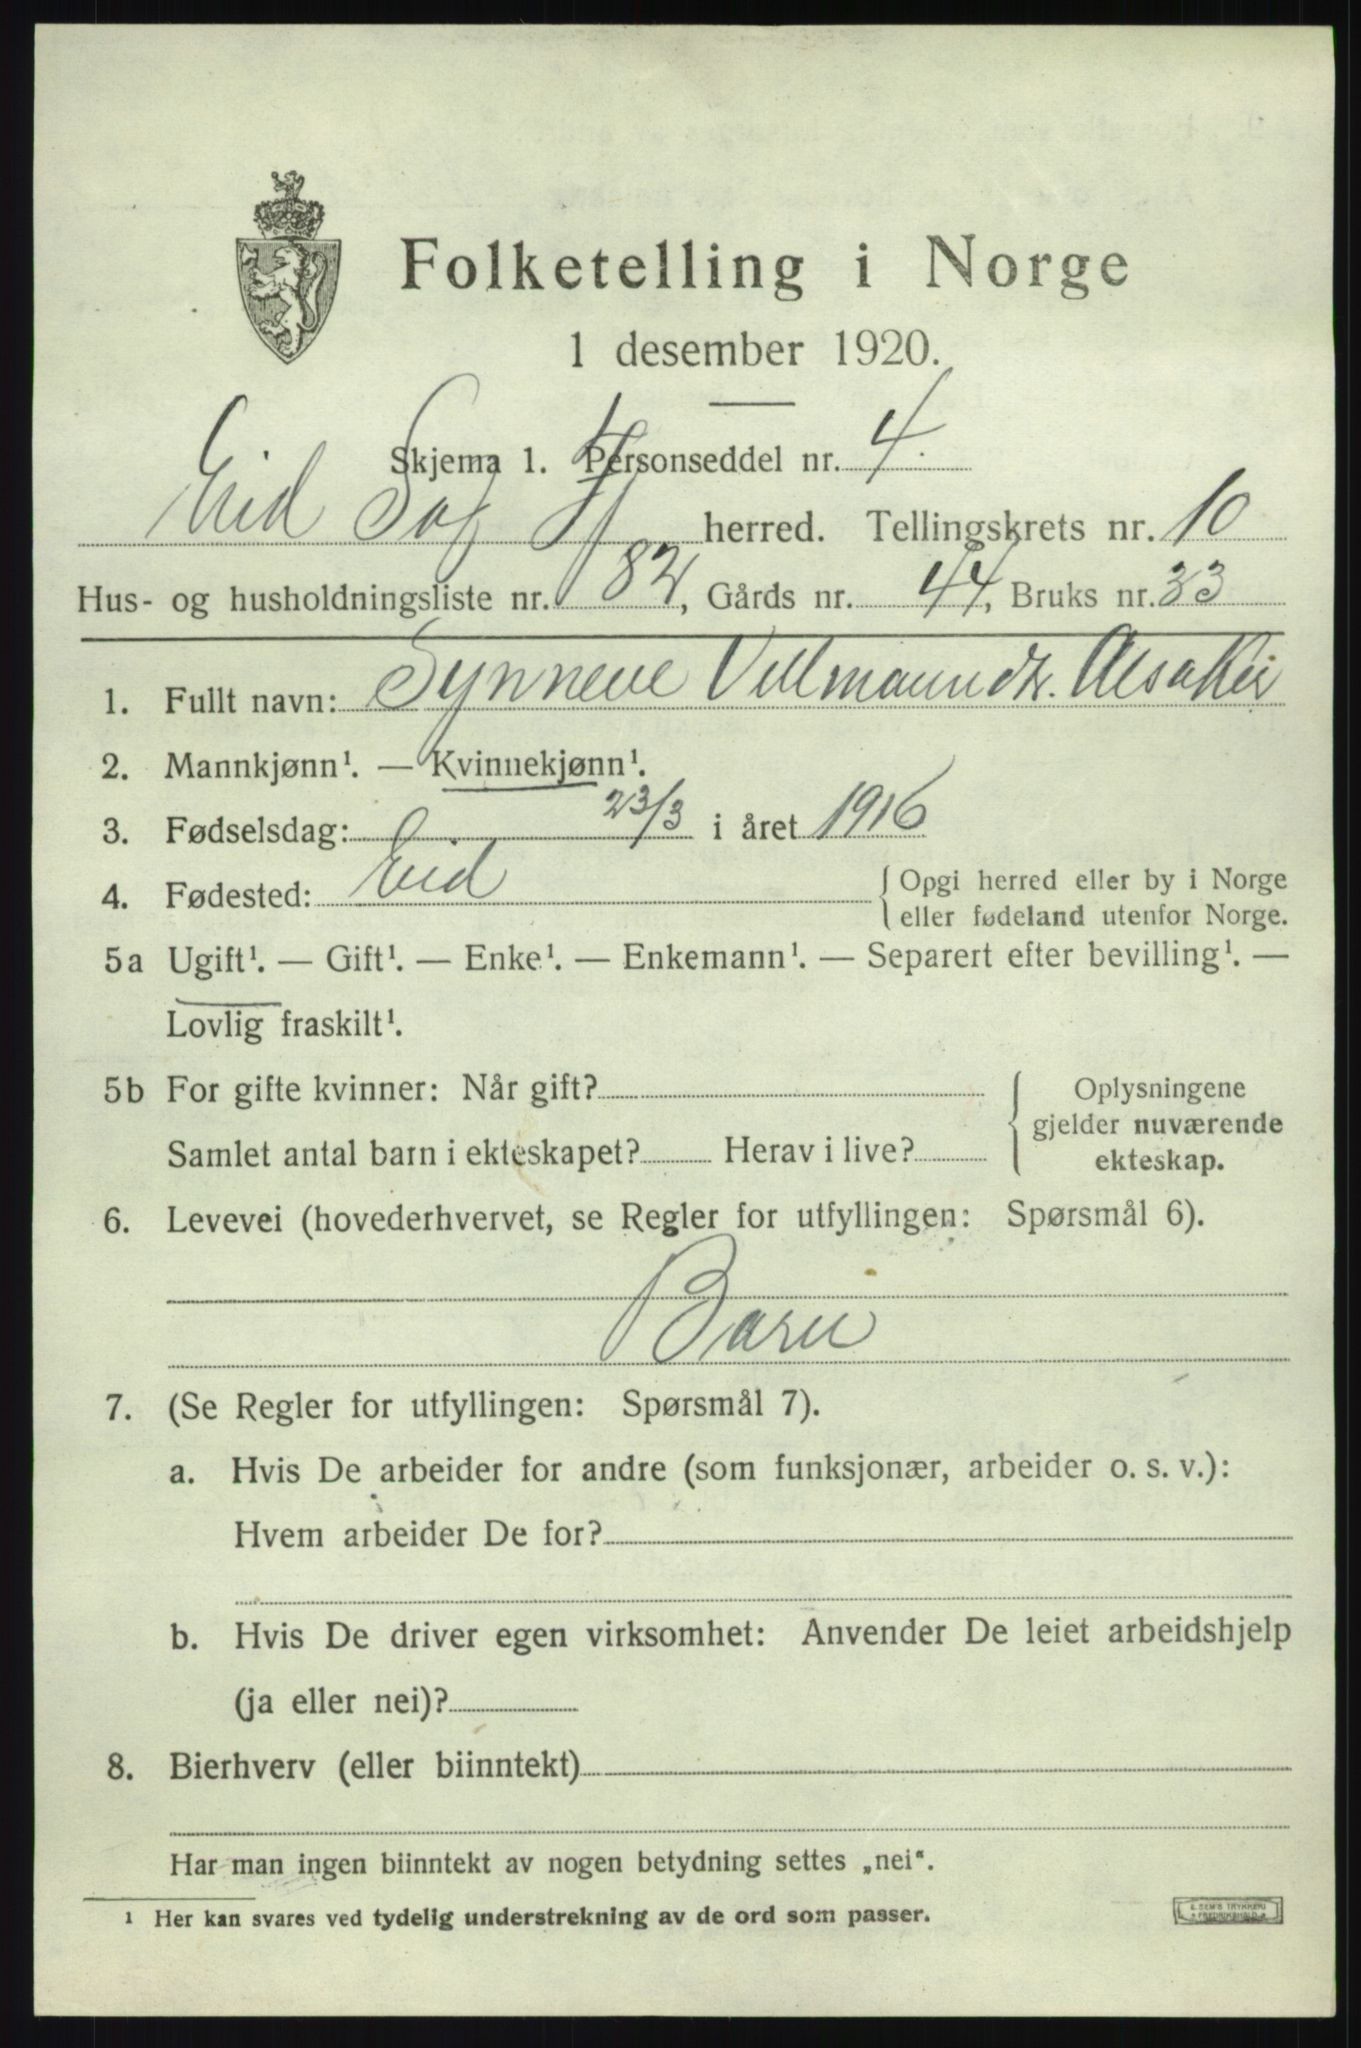 Folketelling i Norge
1 desember 1920.
Skjema 1. Personseddel nr. 4.
Eid herred. Tellingskrets nr. 10
Hus- og husholdningsliste nr. 82, Gårds nr. 44, Bruks nr. 33
1. Fullt navn: Synneve Villmanndtr. Alsaker
2. Mannkjønn¹. — Kvinnekjønn¹.
3. Fødselsdag: 23/3 i året 1916
4. Fødested: Eid { Opgi herred eller by i Norge
eller fødeland utenfor Norge.
5a Ugift¹. — Gift¹. — Enke¹. — Enkemann¹. — Separert efter bevilling¹. —
Lovlig fraskilt¹.
5b For gifte kvinner: Når gift?
Samlet antal barn i ekteskapet? Herav i live?
{ Oplysningene
gjelder nuværende
ekteskap.
6. Levevei (hovederhvervet, se Regler for utfyllingen: Spørsmål 6).
Barn
7. (Se Regler for utfyllingen: Spørsmål 7).
a. Hvis De arbeider for andre (som funksjonær, arbeider o. s. v.):
Hvem arbeider De for?
b. Hvis De driver egen virksomhet: Anvender De leiet arbeidshjelp
(ja eller nei)?
8. Bierhverv (eller biinntekt)
Har man ingen biinntekt av nogen betydning settes „nei“.
¹ Her kan svares ved tydelig understrekning av de ord som passer.
E. SEM'S TRYKKERI
FREDRIKSHALD